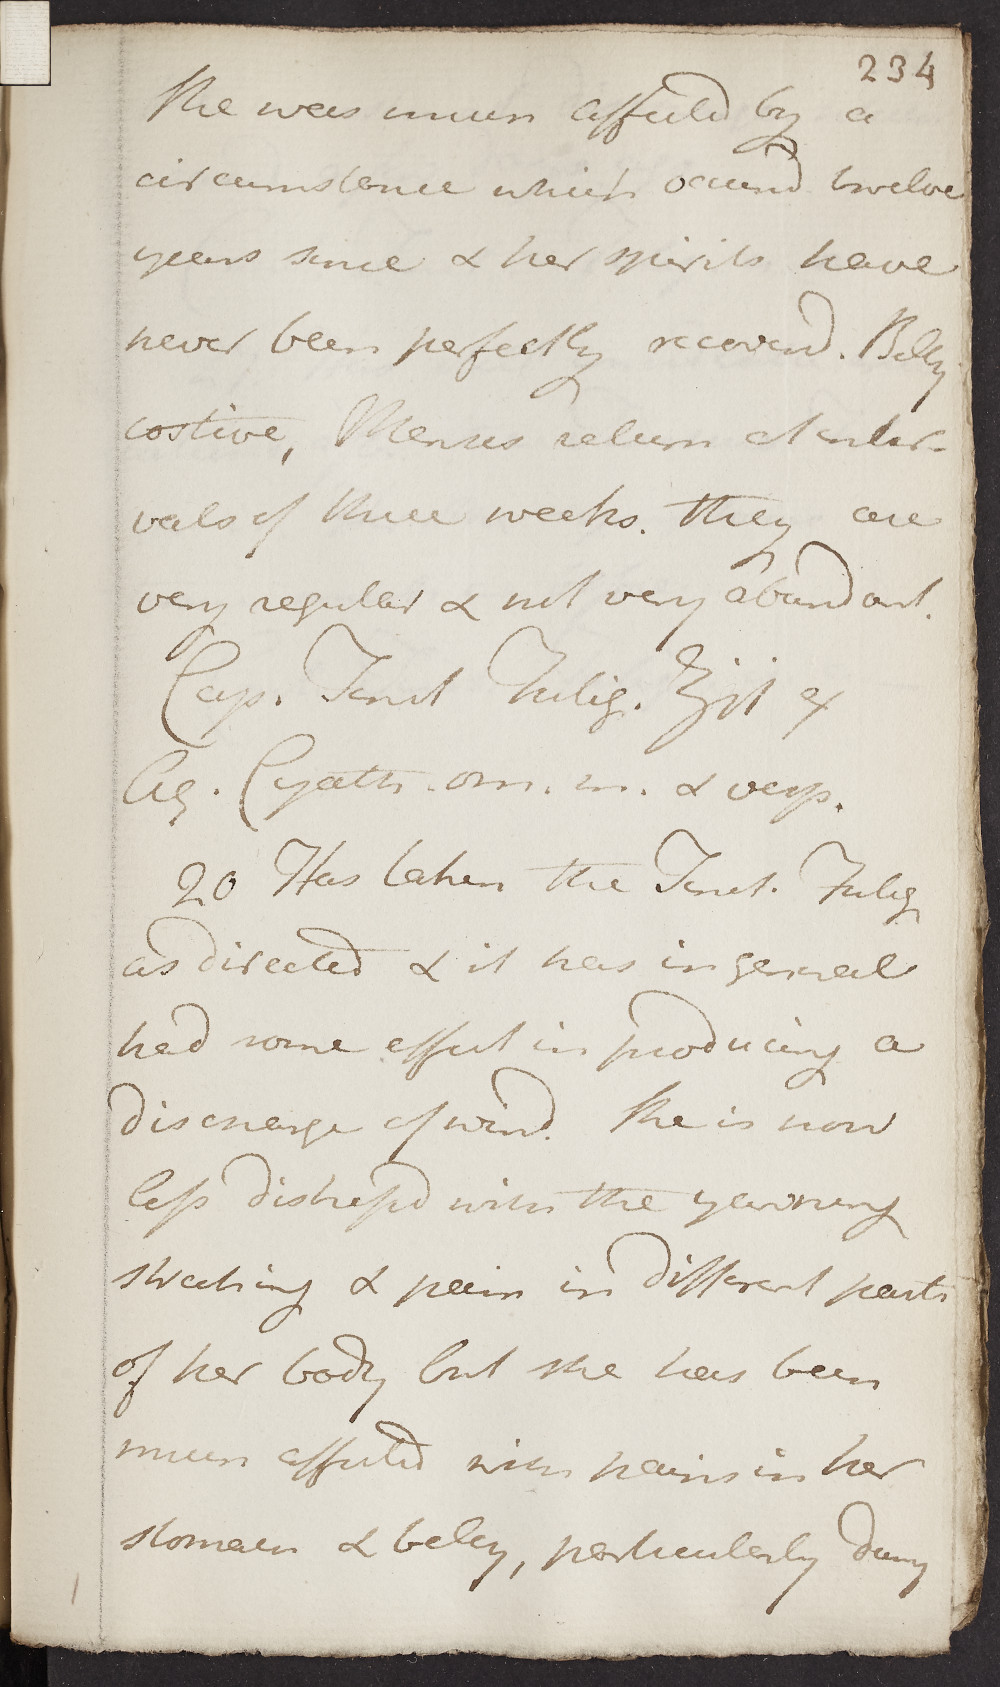 234
She was much affected by a
circumstance which occurred twelve
years since & her spirits have
never been perfectly recovered. Belly
costive, Menses return at inter-
vals of three weeks. they are
very regular & not very abundant.
Cap. Tinct Fulig. ʒjſs ex
Aq. Cyath. om. m. & vesp.
20 Has taken the Tinct. Fulig
as directed & it has in general
had some effect in producing a
discharge of wind. She is now
less distressd with the yawning
stretching & pain in different parts
of her body but she has been
much affected with pains in her
stomach & belly, particularly during